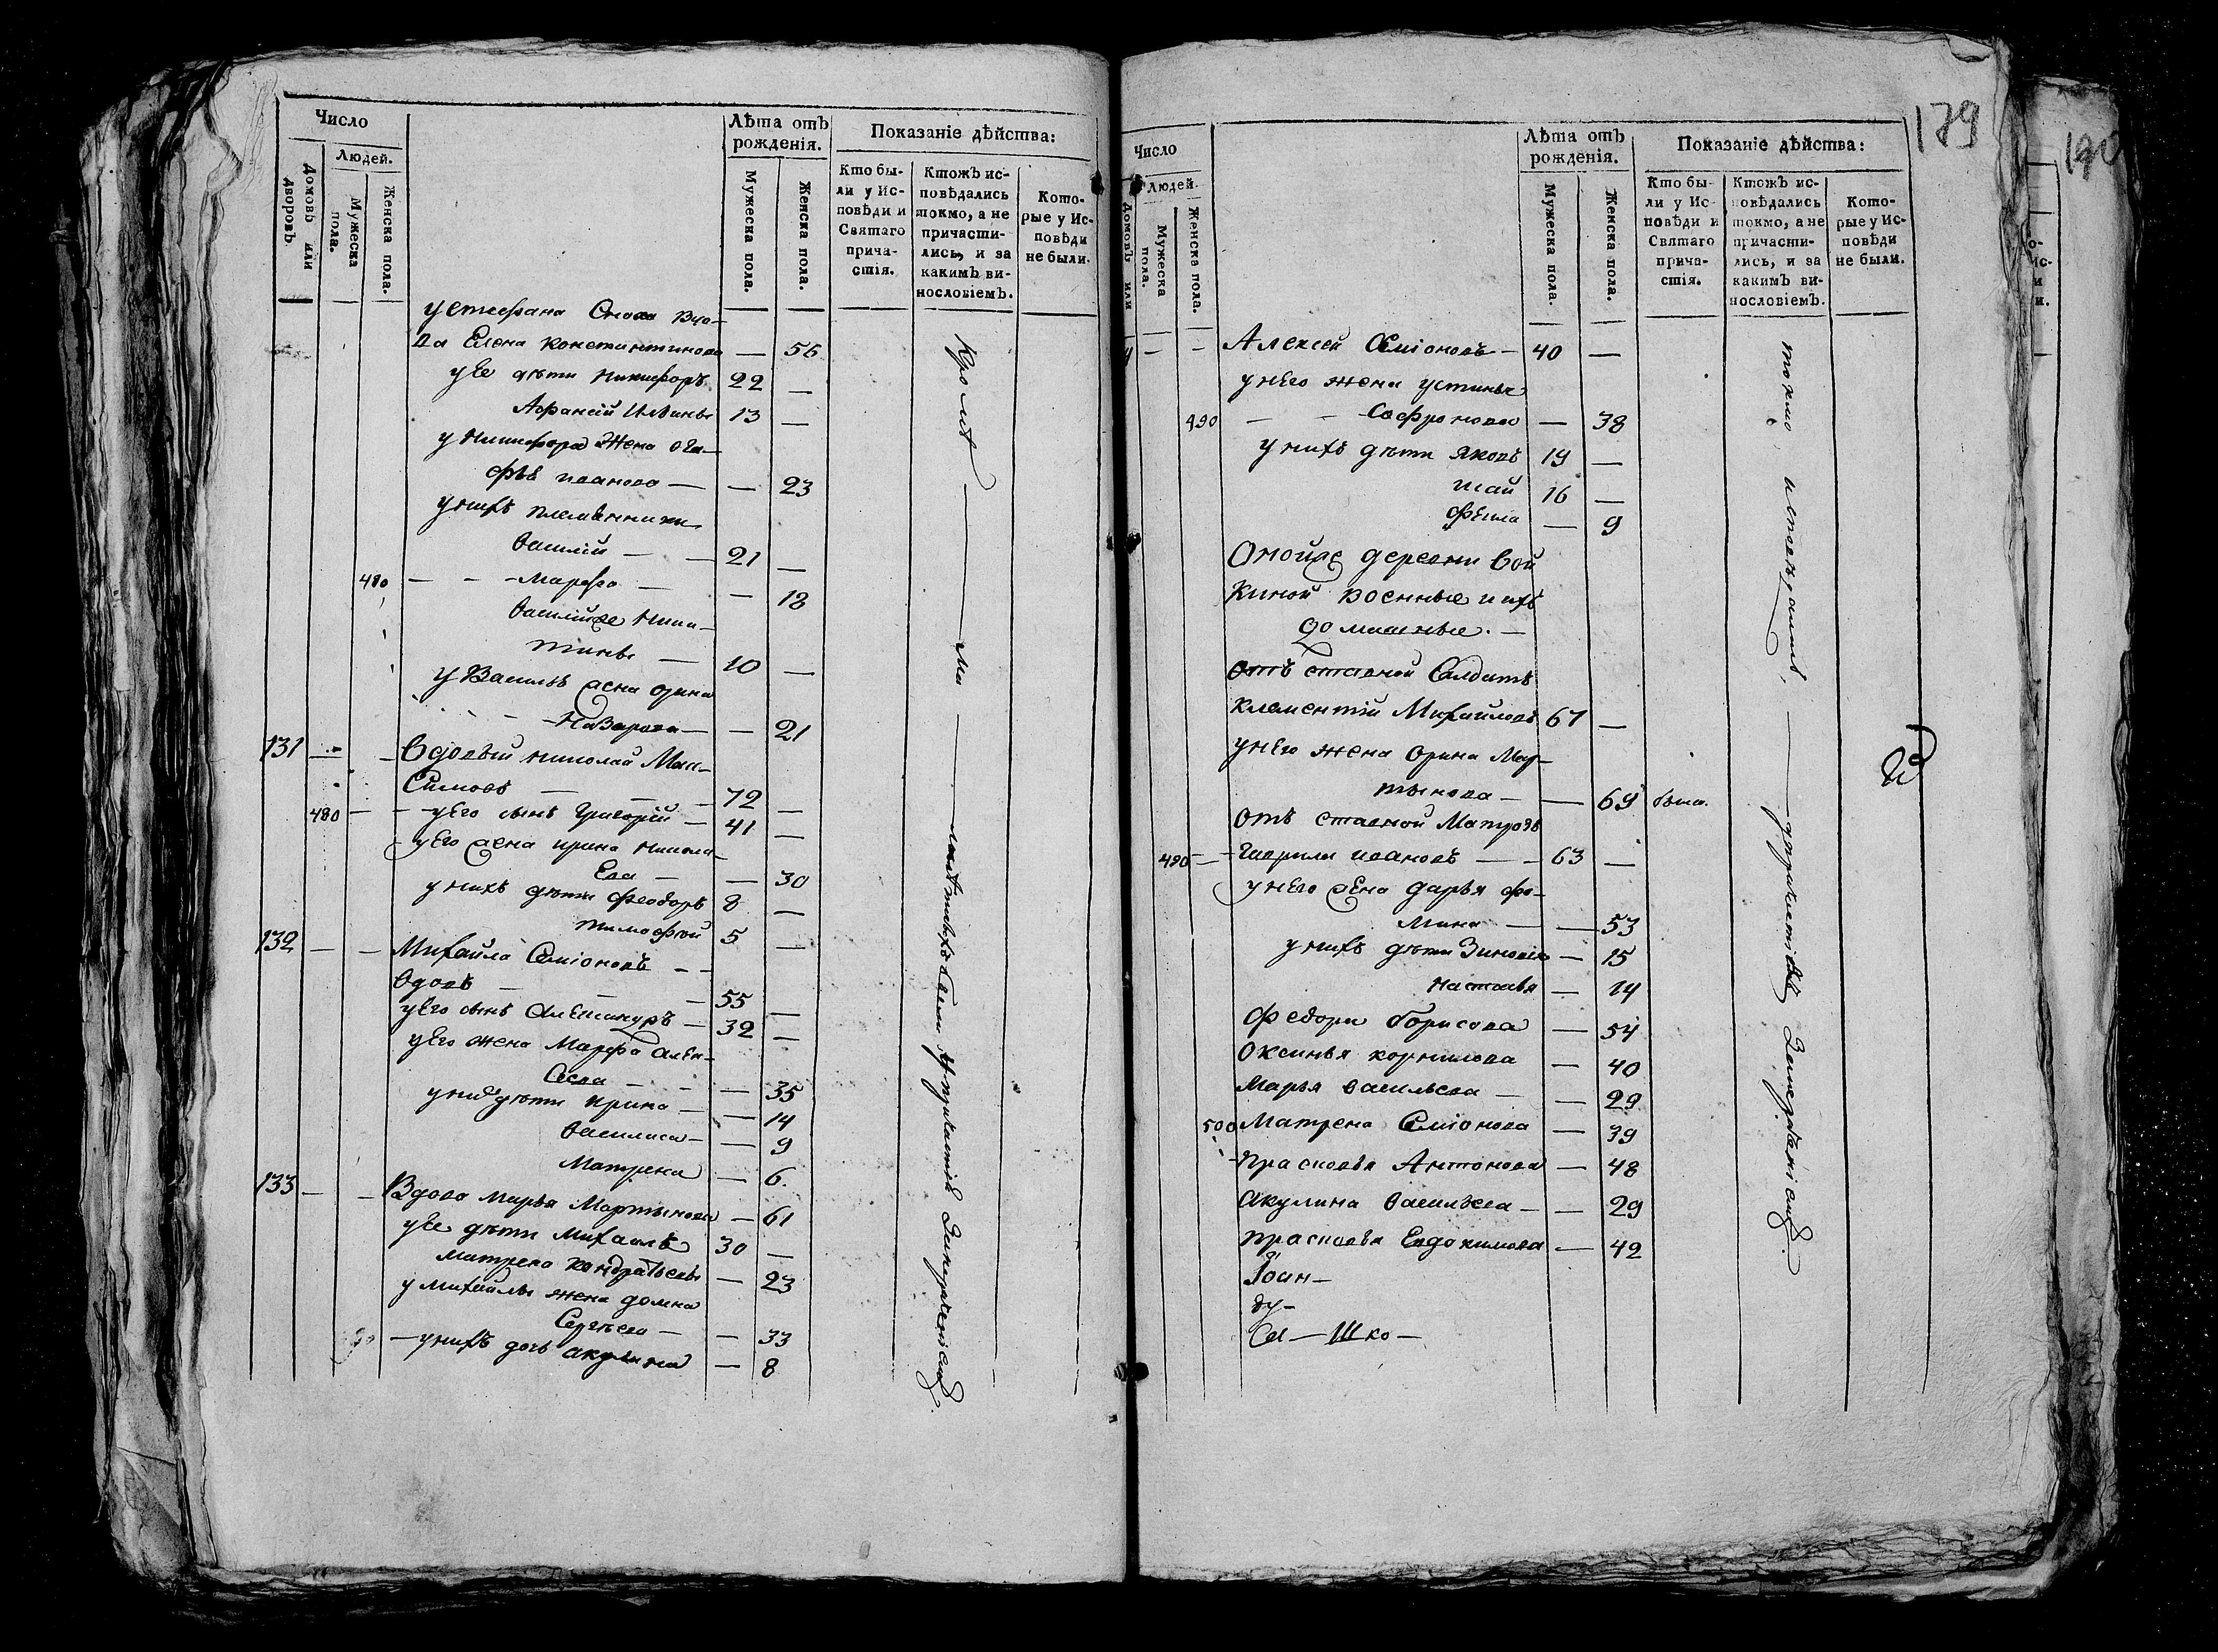 Число
Людей.
Домовъ или дворовъ.
Мужеска пола.
Женска пола.
Лѣта отъ рожденія.
Мужеска пола.
Женска пола.
Показаніе дѣйства:
Кто бы-
ли у Ис-
повѣди и
Святаго
прича-
стія.
Ктожъ ис-
повѣдались
токмо, а не
причасти-
лись, и за
какимъ ви-
нословіемъ.
Кото-
рые у Ис-
повѣди
не были.
у Стефана Сноха Вдо-
ва Елена Константинова — 56
у Ее дѣти Никифоръ 22 —
Афанасій Ильины 13 —
у Никифора Жена Ога-
фья иванова — — 23
у нихъ племянники
Василій — 21 —
480 — Марфа — — 18
Василій же Ники-
тины — 10 —
у Василья жена орина
Назарова — — 21
131 — Вдовый николай Мак-
симовъ — 72 —
480 — у Его сынъ Григорій — 41 —
у Его жена ирина никола-
Ева — — 30
у нихъ дѣти Феодоръ 8 —
тимофѣй 5 —
132 — Михайла Семіоновъ —
вдовъ — 55 —
у Его сынъ Александръ — 32 —
у Его жена Марфа Алек-
сѣева — — 35
у них дѣти ирина — — 14
василиса — — 9
Матрена — 6.
133 — Вдова марья Мартынова — 61
у Ее дѣти Михаилъ 30 —
матрена кондратьевы — 23
у михайлы жена домна
Сергѣева — — 33
— у нихъ дочь акулина — 8
Кромѣ
179
190
Число
Людей.
Домовъ или
Мужеска пола.
Женска пола.
Лѣта отъ рожденія.
Мужеска пола.
Женска пола.
Показаніе дѣйства:
Кто бы-
ли у Ис-
повѣди и
Святаго
прича-
стія.
Ктожъ ис-
повѣдались
токмо, а не
причасти-
лись, и за
какимъ ви-
нословіемъ.
Кото-
рые у Ис-
повѣди
не были.
Алексѣй Семіоновъ — 40 —
у него жена устинья
490 — Софронова — 38
у нихъ дѣти Яковъ 19 —
16 —
— 9
Оной же деревни Вой
киной военные и ихъ
домашные. —
Отъ ставной Салдатъ
Климентій Михайловъ 67 —
у него жена Орина Мар-
тынова — — 69 была.
Отъ ставной Матрозъ
490 — Гаврила ивановъ — 63 —
у него жена дарья фо-
мина — — 53
у нихъ дѣти Зиновія — 15
настасья — 14
Федора борисова — 54
Оксинья корнилова — 40
Марья васильева — — 29
500 Матрена Семіонова — 39
прасковья Антонова — 48
Акулина васильева — — 29
прасковья Евдокимова — 42
токмо